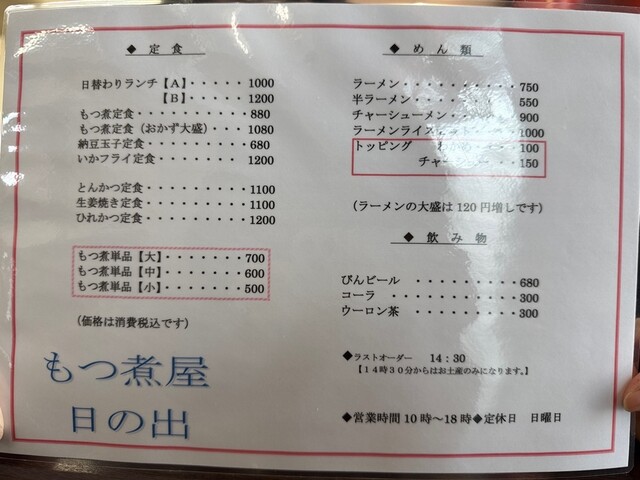 ◆ 定 食
日替わりランチ【A】・・・・・ 1000
【B】・・・・・ 1200
もつ煮定食・・・・・・・・・・ 880
もつ煮定食（おかず大盛）・・・ 1080
納豆玉子定食・・・・・・・・・ 680
いかフライ定食・・・・・・・・ 1200
とんかつ定食・・・・・・・・・ 1100
生姜焼き定食・・・・・・・・・ 1100
ひれかつ定食・・・・・・・・・ 1200
もつ煮単品【大】・・・・・・・ 700
もつ煮単品【中】・・・・・・・ 600
もつ煮単品【小】・・・・・・・ 500
（価格は消費税込です）
もつ煮屋
日の出
◆ め ん 類
ラーメン・・・・・・・・・・ 750
半ラーメン・・・・・・・・・ 550
チャーシューメン・・・・・・ 900
ラーメンライス ・・・ 1000
トッピング わかめ・・・ 100
チャーシュー・・・ 150
（ラーメンの大盛は120円増しです）
◆ 飲 み 物
びんビール・・・・・・・・・ 680
コーラ ・・・・・・・・・・ 300
ウーロン茶 ・・・・・・・・・ 300
◆ラストオーダー 14：30
【14時30分からはお土産のみになります。】
◆営業時間10時～18時◆定休日 日曜日